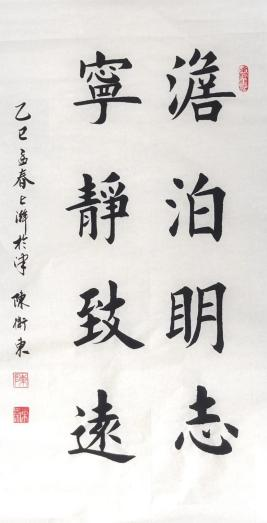 澹泊明志
寧靜致遠
乙巳孟春上澣於津 陳衛東